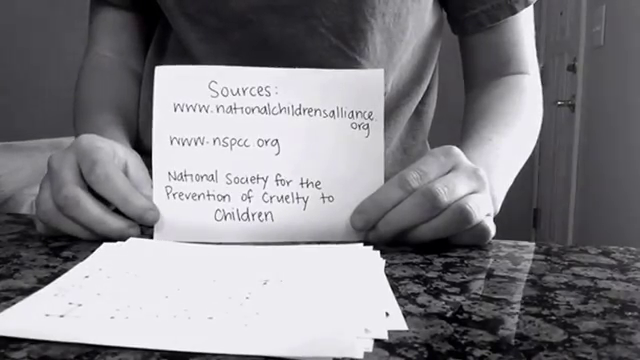 Sources:
www.nationalchildrensalliance.
org
www.nspcc.org
National Society for the
Prevention of Cruelty to
Children